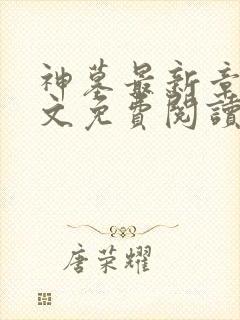 神墓最新章
文免費閱讀
唐荣耀